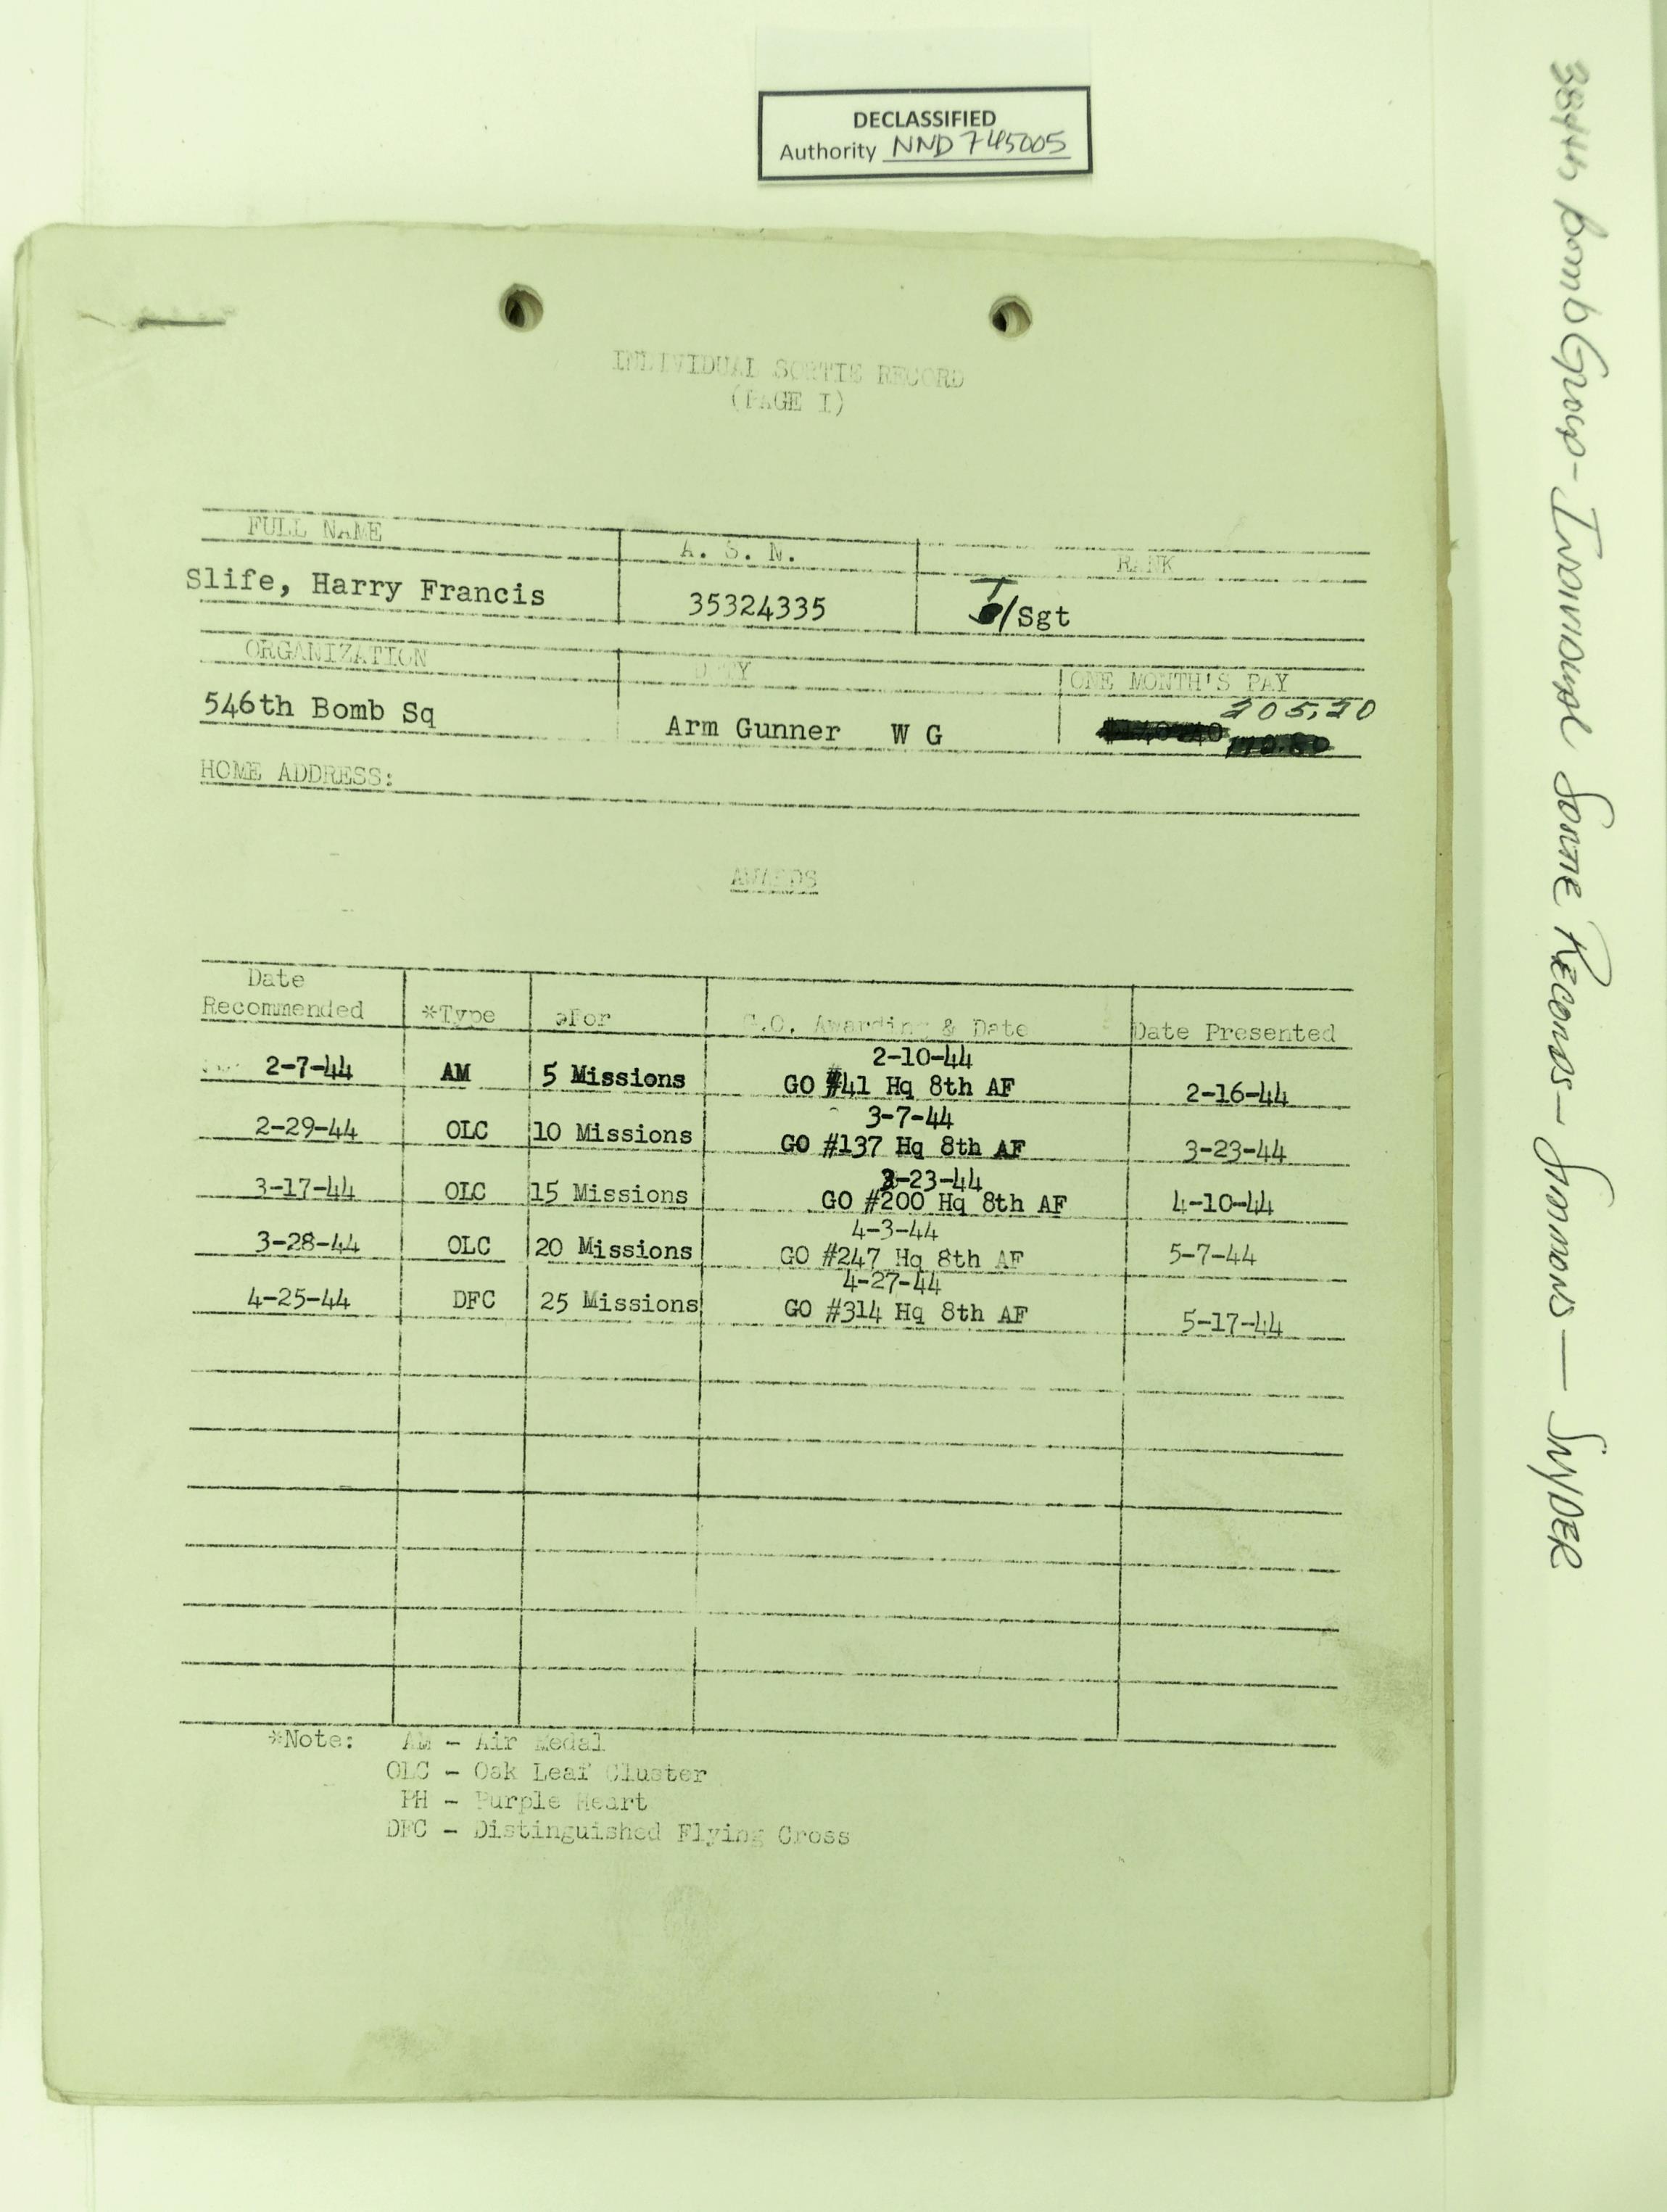 DECLASSIFIED
Authority NND 745005
384th Bomb Group - Individual Sortie Records - Simmons — Snyder
INDIVIDUAL SORTIE RECORD
(PAGE I)
FULL NAME A. S. N. RANK
Slife, Harry Francis 35324335 T/Sgt
ORGANIZATION DUTY ONE MONTH'S PAY
546th Bomb Sq Arm Gunner W G 205.20
HOME ADDRESS:
AWARDS
Date
Recommended *Type *For G.O. Awarding & Date Date Presented
2-10-44
2-7-44 AM 5 Missions GO #41 Hq 8th AF 2-16-44
3-7-44
2-29-44 OLC 10 Missions GO #137 Hq 8th AF 3-23-44
3-23-44
3-17-44 OLC 15 Missions GO #200 Hq 8th AF 4-10-44
4-3-44
3-28-44 OLC 20 Missions GO #247 Hq 8th AF 5-7-44
4-27-44
4-25-44 DFC 25 Missions GO #314 Hq 8th AF 5-17-44
*Note: AM - Air Medal
OLC - Oak Leaf Cluster
PH - Purple Heart
DFC - Distinguished Flying Cross